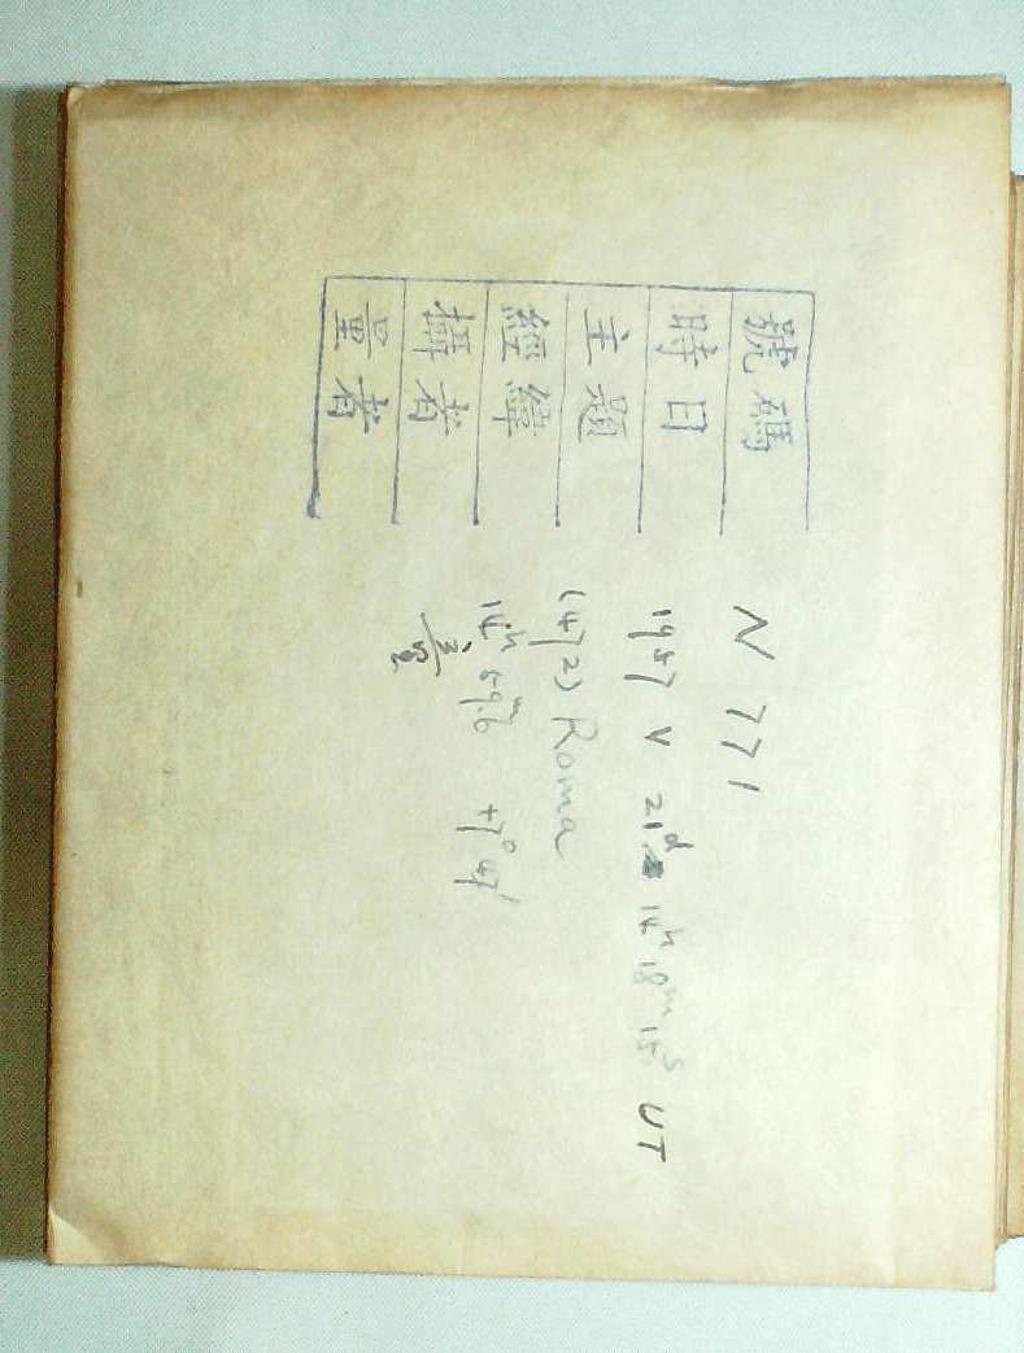 號碼 N 771
時日 1957 V 21d 14h 18m 15s UT
主題 (472) Roma
經緯 14h 59.m6 +7° 47'
攝者
量者